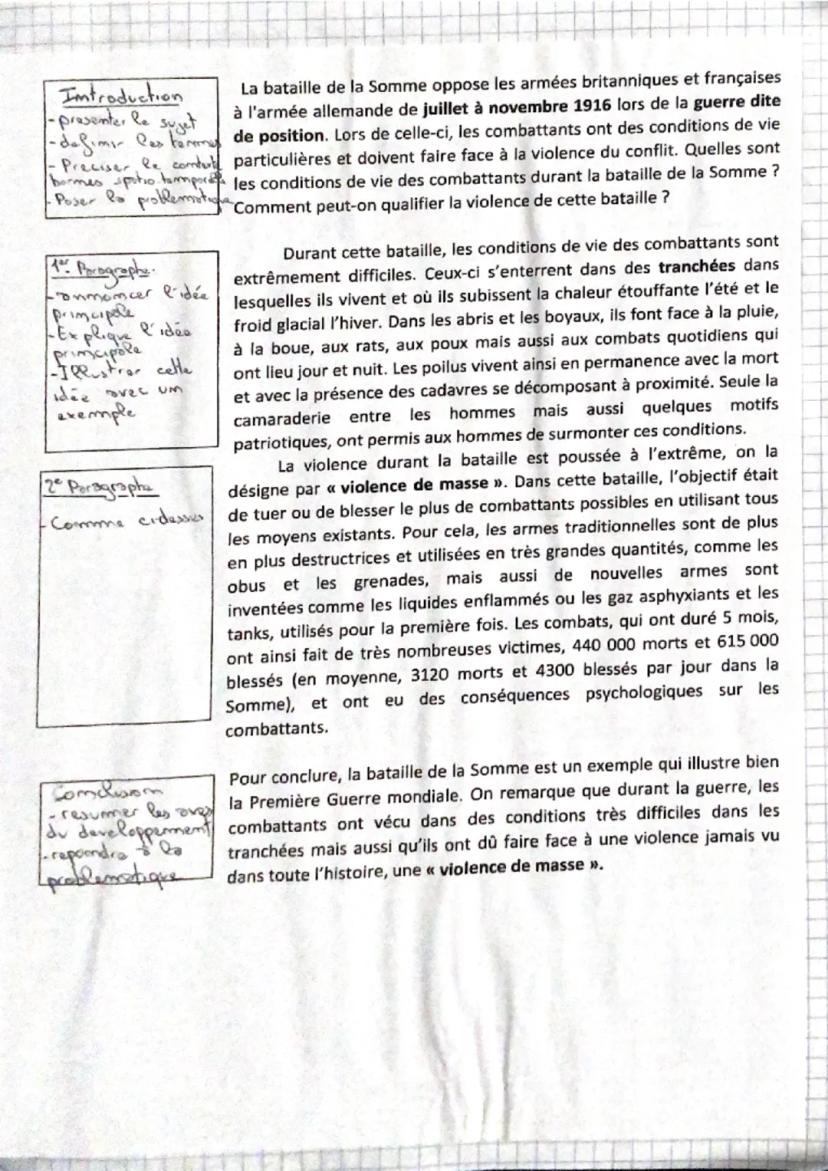 Introduction
- presenter le sujet
- definir les termes
- Preciser le contexte
bornes spatio temporelles
- Poser la problematique
La bataille de la Somme oppose les armées britanniques et françaises
à l'armée allemande de juillet à novembre 1916 lors de la guerre dite
de position. Lors de celle-ci, les combattants ont des conditions de vie
particulières et doivent faire face à la violence du conflit. Quelles sont
les conditions de vie des combattants durant la bataille de la Somme ?
Comment peut-on qualifier la violence de cette bataille ?
1er Paragraphe.
- annoncer l'idée
principale
- Explique l'idée
principale
- Illustrer cette
idée avec un
exemple
Durant cette bataille, les conditions de vie des combattants sont
extrêmement difficiles. Ceux-ci s'enterrent dans des tranchées dans
lesquelles ils vivent et où ils subissent la chaleur étouffante l'été et le
froid glacial l'hiver. Dans les abris et les boyaux, ils font face à la pluie,
à la boue, aux rats, aux poux mais aussi aux combats quotidiens qui
ont lieu jour et nuit. Les poilus vivent ainsi en permanence avec la mort
et avec la présence des cadavres se décomposant à proximité. Seule la
camaraderie entre les hommes mais aussi quelques motifs
patriotiques, ont permis aux hommes de surmonter ces conditions.
2e Paragraphe
- Comme ci dessus
La violence durant la bataille est poussée à l'extrême, on la
désigne par « violence de masse ». Dans cette bataille, l'objectif était
de tuer ou de blesser le plus de combattants possibles en utilisant tous
les moyens existants. Pour cela, les armes traditionnelles sont de plus
en plus destructrices et utilisées en très grandes quantités, comme les
obus et les grenades, mais aussi de nouvelles armes sont
inventées comme les liquides enflammés ou les gaz asphyxiants et les
tanks, utilisés pour la première fois. Les combats, qui ont duré 5 mois,
ont ainsi fait de très nombreuses victimes, 440 000 morts et 615 000
blessés (en moyenne, 3120 morts et 4300 blessés par jour dans la
Somme), et ont eu des conséquences psychologiques sur les
combattants.
Conclusion
- resumer les
du developpement
- repondre à la
problematique
Pour conclure, la bataille de la Somme est un exemple qui illustre bien
la Première Guerre mondiale. On remarque que durant la guerre, les
combattants ont vécu dans des conditions très difficiles dans les
tranchées mais aussi qu'ils ont dû faire face à une violence jamais vu
dans toute l'histoire, une « violence de masse ».